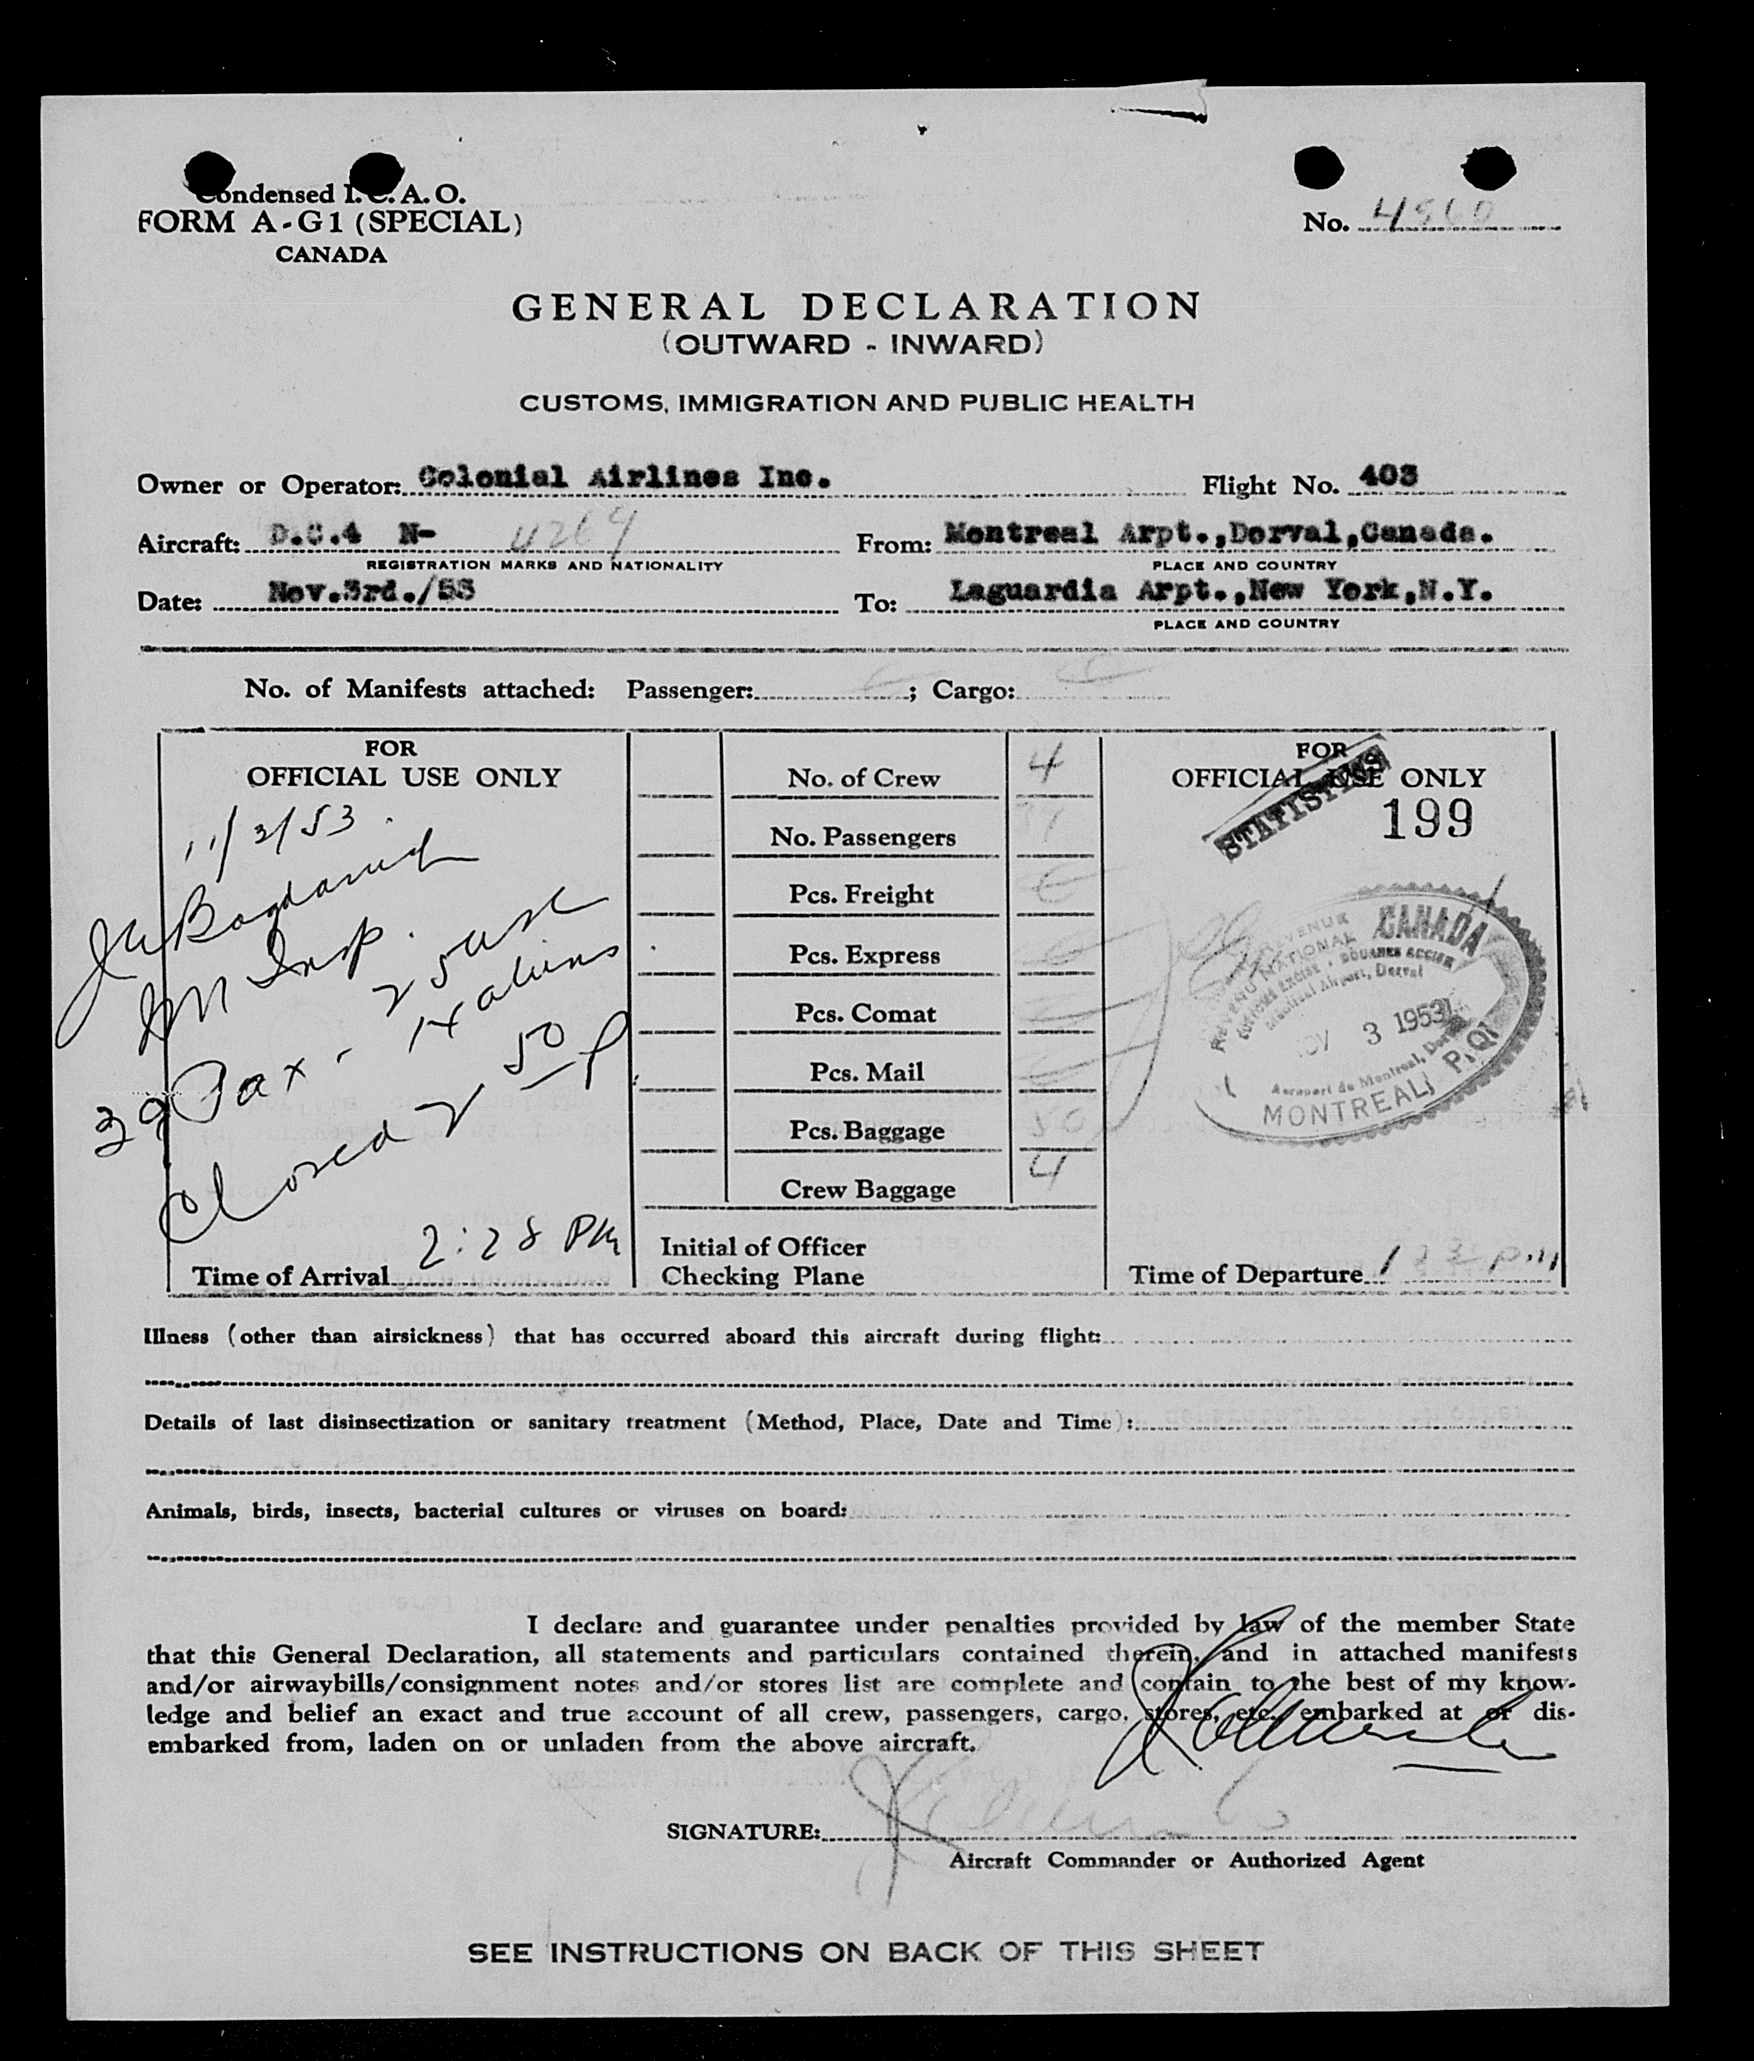 Condensed I.C.A.O.
FORM A-G1 (SPECIAL)
CANADA
No.
GENERAL DECLARATION
(OUTWARD - INWARD)
CUSTOMS, IMMIGRATION AND PUBLIC HEALTH
Owner or Operator: Colonial Airlines Inc. Flight No. 403
Aircraft: D.C.4 N- 4269 From: Montreal Arpt.,Dorval,Canada.
REGISTRATION MARKS AND NATIONALITY PLACE AND COUNTRY
Date: Nov.3rd./53 To: Laguardia Arpt.,New York,N.Y.
PLACE AND COUNTRY
No. of Manifests attached: Passenger: ; Cargo:
FOR
OFFICIAL USE ONLY
11/3/53
Insp.
39 Pax - 25 USC
14 aliens
Closed 2 50 P
Time of Arrival 2:28 PM
No. of Crew 4
No. Passengers
Pcs. Freight
Pcs. Express
Pcs. Comat
Pcs. Mail
Pcs. Baggage 50
Crew Baggage 4
Initial of Officer
Checking Plane
FOR
OFFICIAL USE ONLY
STATISTICS
199
REVENUE CANADA
REVENU NATIONAL
CUSTOMS EXCISE • DOUANES ACCISE
Montreal Airport, Dorval
NOV 3 1953
Aeroport de Montreal, Dorval
MONTREAL P.Q.
Time of Departure 1 p.m
Illness (other than airsickness) that has occurred aboard this aircraft during flight:
Details of last disinsectization or sanitary treatment (Method, Place, Date and Time):
Animals, birds, insects, bacterial cultures or viruses on board:
I declare and guarantee under penalties provided by law of the member State
that this General Declaration, all statements and particulars contained therein, and in attached manifests
and/or airwaybills/consignment notes and/or stores list are complete and contain to the best of my know-
ledge and belief an exact and true account of all crew, passengers, cargo, stores, etc. embarked at or dis-
embarked from, laden on or unladen from the above aircraft.
SIGNATURE:
Aircraft Commander or Authorized Agent
SEE INSTRUCTIONS ON BACK OF THIS SHEET